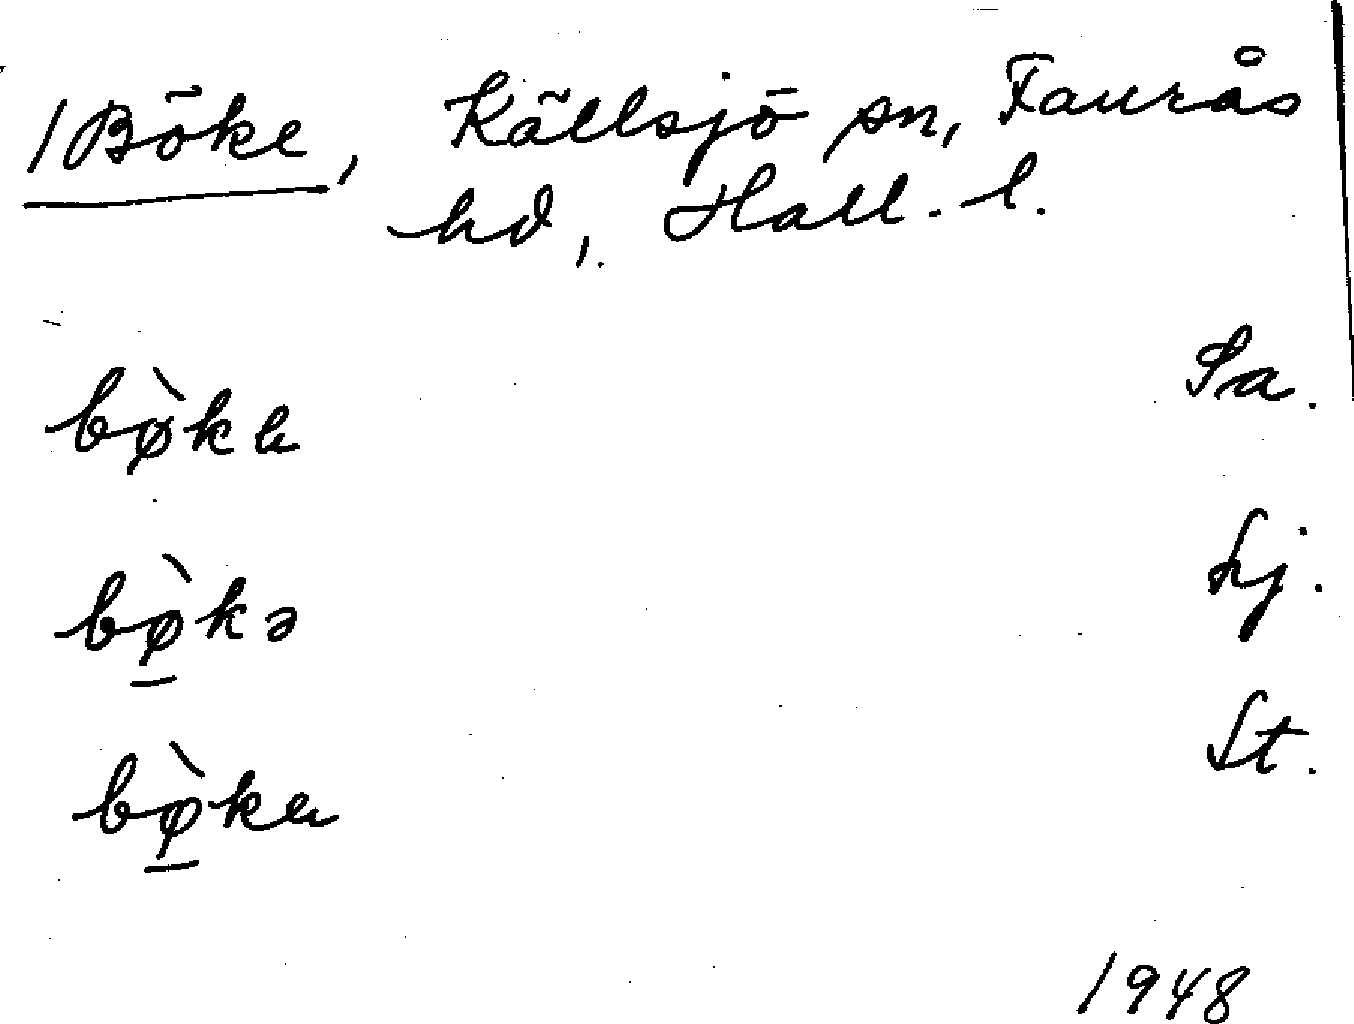 1 Böke, Källsjö sn, Faurås
hd, Hall. l.
bø̀ka Sa.
bø̠̀kə Lj.
bø̠̀ka St.
1948